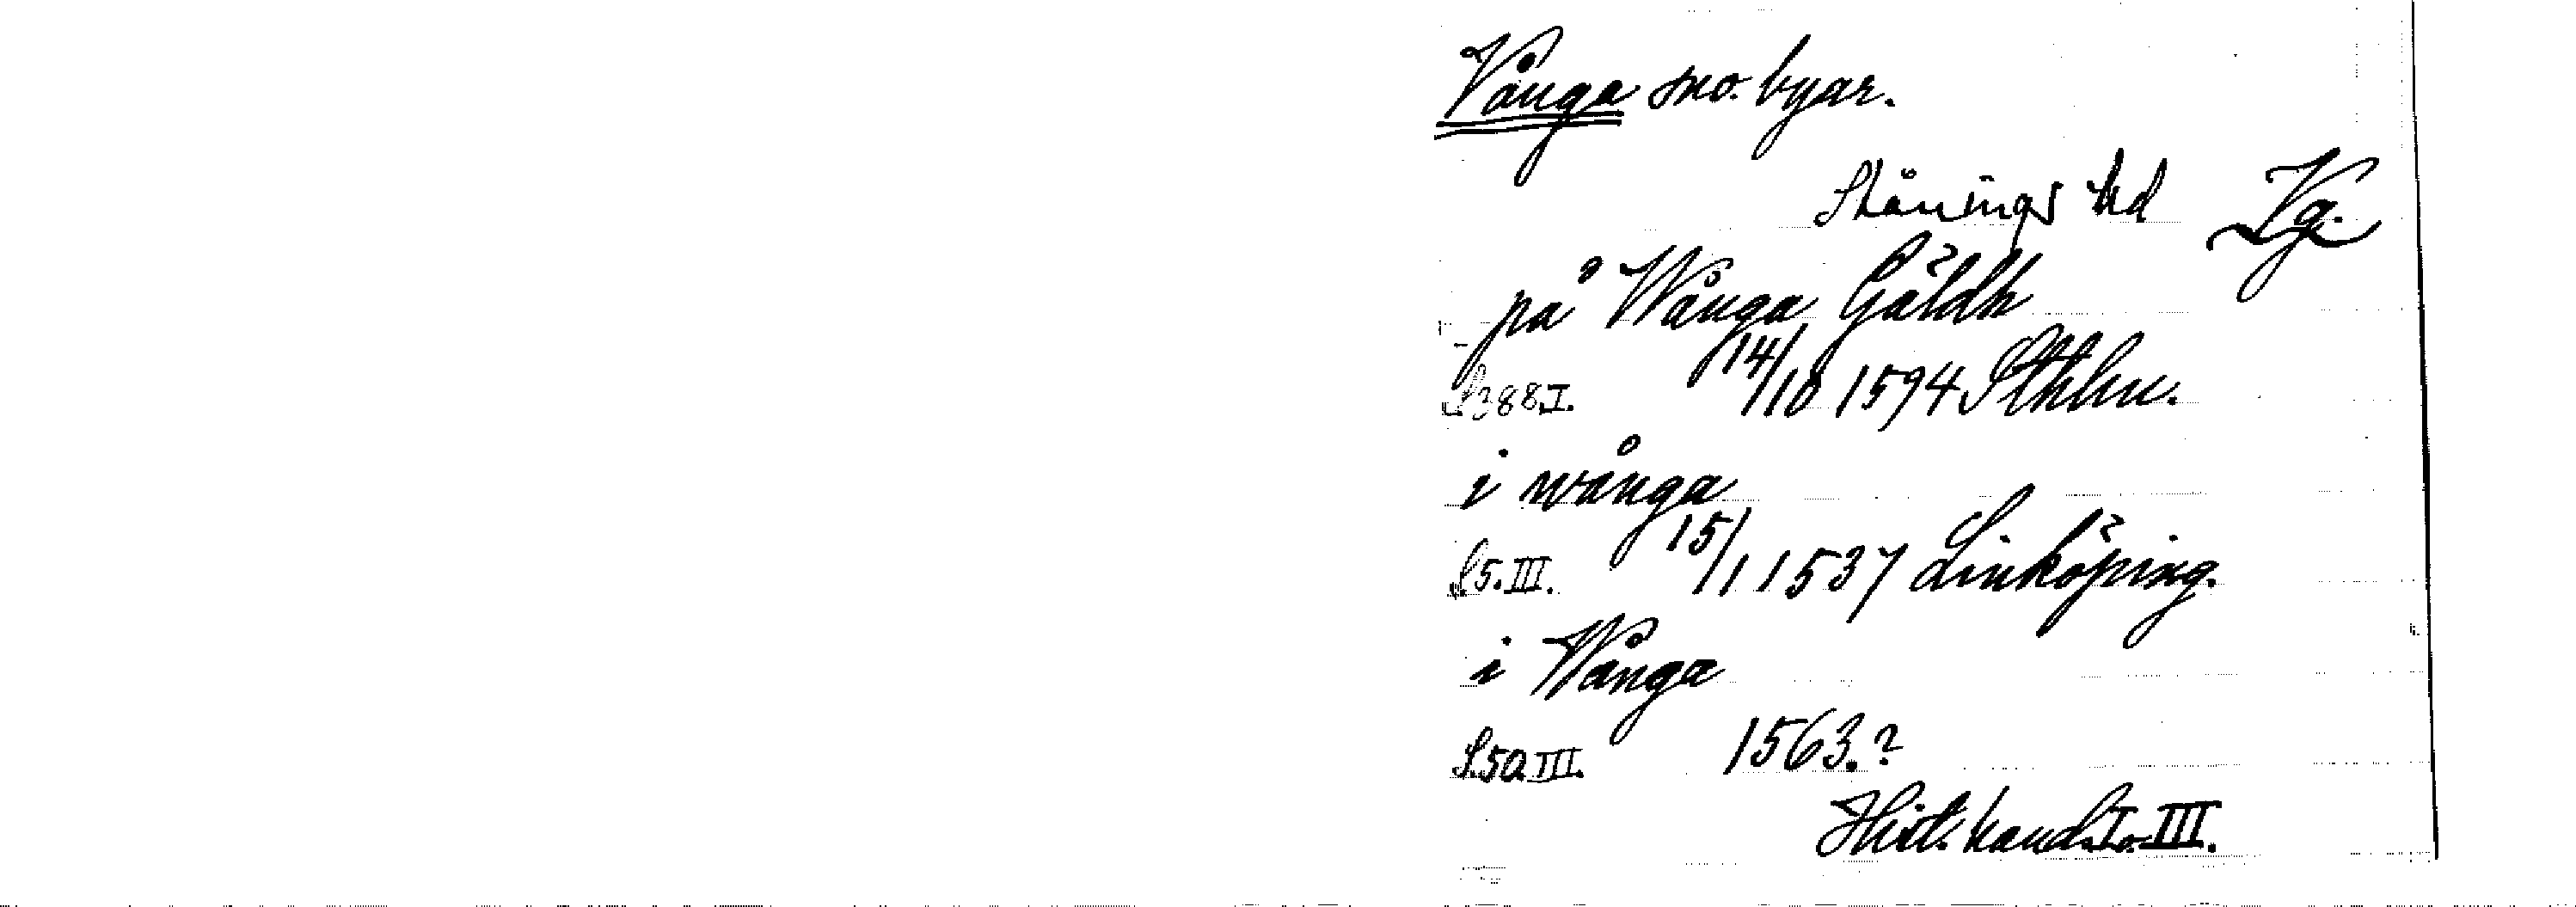 Vånga sno. byar.
Skånings hd Vg.
på Wånga Gåldh
S388.I. 14/10 1594 Sthlm.
i wånga
S5.III. 15/1 1537 Linköping.
i Wånga
S.50.III. 1563.?
Hist. hand. I. o. III.